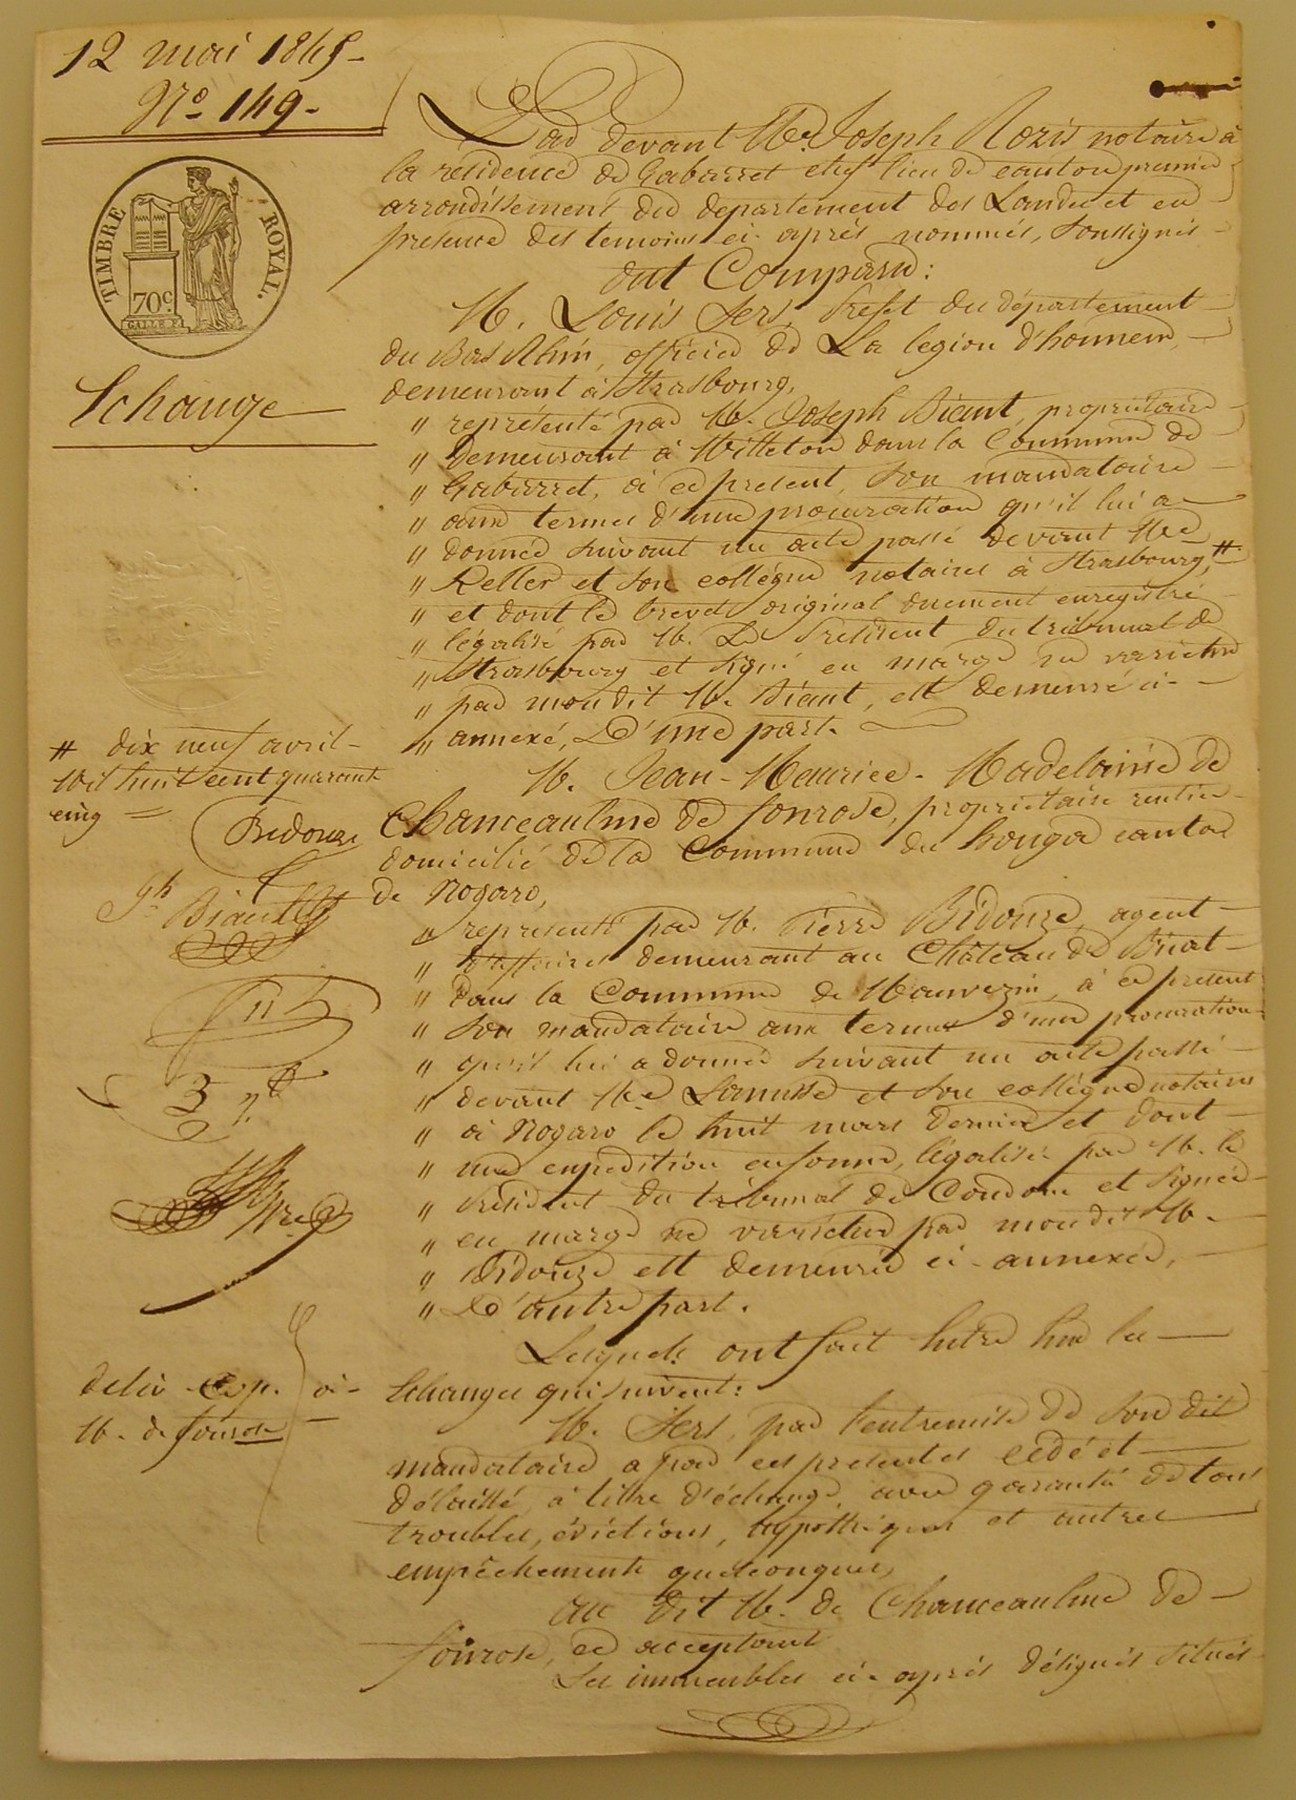 12 mai 1845
No 149
TIMBRE ROYAL.
70c.
GALLE F.
Echange
Par devant Me. Joseph Rozis notaire à
la résidence de Gabarret chef lieu de canton premier
arrondissement du departement des Landes et en
presence des temoins ci-après nommés, soussignés
ont Comparu:
M. Louis Sers, Prefet du département
du Bas Rhin, officier de La legion d'honneur,
demeurant à Strasbourg,
" représenté par M. Joseph Biaut, propriétaire
" Demeurant à Witteton dans la Commune de
" Gabarret, à ce present, son mandataire
" aux termes d'une procuration qu'il lui a
" donnée suivant un acte passé devant Me
" Keller et son collégue notaires à Strasbourg, #
" et dont le brevet original duement enregistré
" légalisé par M. Le Président du tribunal de
" Strasbourg et signé en marge ne varietur
" par mondit M. Biaut, est demeuré ci-
" annexé, D'une part.
# dix neuf avril
Mil huit cent quarante
cinq =
Bidouze
Jh Biaut
3 r.
M. Jean-Maurice-Madelaine de
Chanceaulme de Fonrose, propriétaire rentier
domicilié de la Commune du houga canton
de Nogaro,
" représenté par M. Pierre Bidouze, agent
" d'affaires demeurant au Château de Briat
" dans la Commune de Mauvezin, à ce present
" son mandataire aux termes d'une procuration
" qu'il lui a donnée suivant un acte passé
" devant Me Lanusse et son collégue notaires
" à Nogaro le huit mars dernier et dont
" une expedition en forme, légalisée par M. le
" Président du tribunal de Condom et signée
" en marge ne varietur par mondit M.
" Bidouze est demeurée ci-annexée,
" D'autre part.
Lesquels ont fait entre eux les
Echanges qui suivent:
deliv. Exp. à
M. de fonrose
M. Sers, par l'entremise de son dit
mandataire a par ces presentes cedé et
délaissé, à titre d'échange, avec garantie de tous
troubles, évictions, hypothèques et autres
empêchements quelconques,
au dit M. de Chanceaulme de
fonrose, ce acceptant
Les immeubles ci-après désignés situés